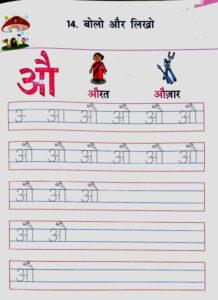 14. बोलो और लिखो
औ
औरत औज़ार
अ आ औ औ औ औ
औ औ औ औ औ औ
औ औ औ औ
औ औ
औ